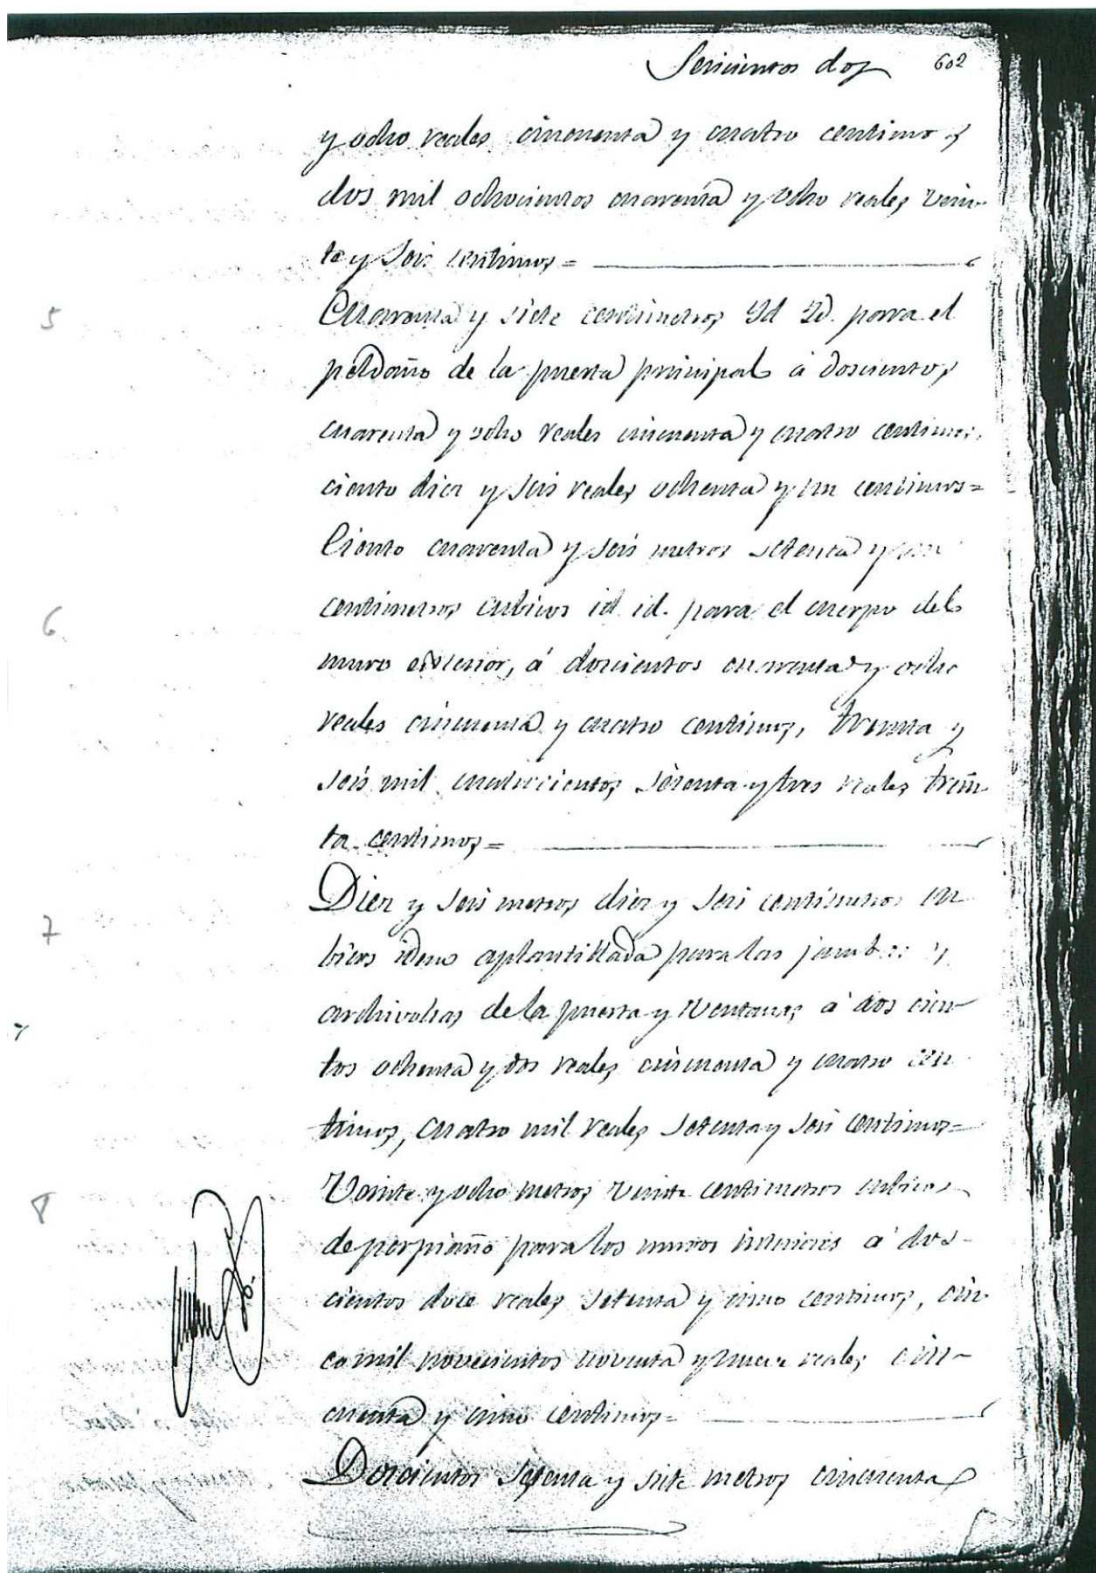 Seiscientos dos 602
y ocho reales cincuenta y cuatro centimos,
dos mil ochocientos cuarenta y ocho reales vein-
te y seis centimos =
5
Cuarenta y siete centimetros Id Id. para el
peldaño de la puerta principal á doscientos
cuarenta y ocho reales cincuenta y cuatro centimos,
ciento diez y seis reales ochenta y un centimos =
6
Ciento cuarenta y seis metros setenta y
centimetros cubicos id id. para el cuerpo del
muro exterior, á doscientos cuarenta y ocho
reales cincuenta y cuatro centimos, treinta y
seis mil cuatrocientos sesenta y tres reales trein-
ta centimos =
7
Diez y seis metros diez y seis centimetros cu
bicos idem aplantillada para las jambas y
archivoltas de la puerta y ventanas á dos cien
tos ochenta y dos reales cincuenta y cuatro cen
timos, cuatro mil reales setenta y seis centimos =
8
Veinte y ocho metros veinte centimetros cubicos
de perpiaño para los muros interiores á dos-
cientos doce reales setenta y cinco centimos, cin
co mil novecientos noventa y nueve reales cin-
cuenta y cinco centimos =
Doscientos setenta y siete metros cincuenta